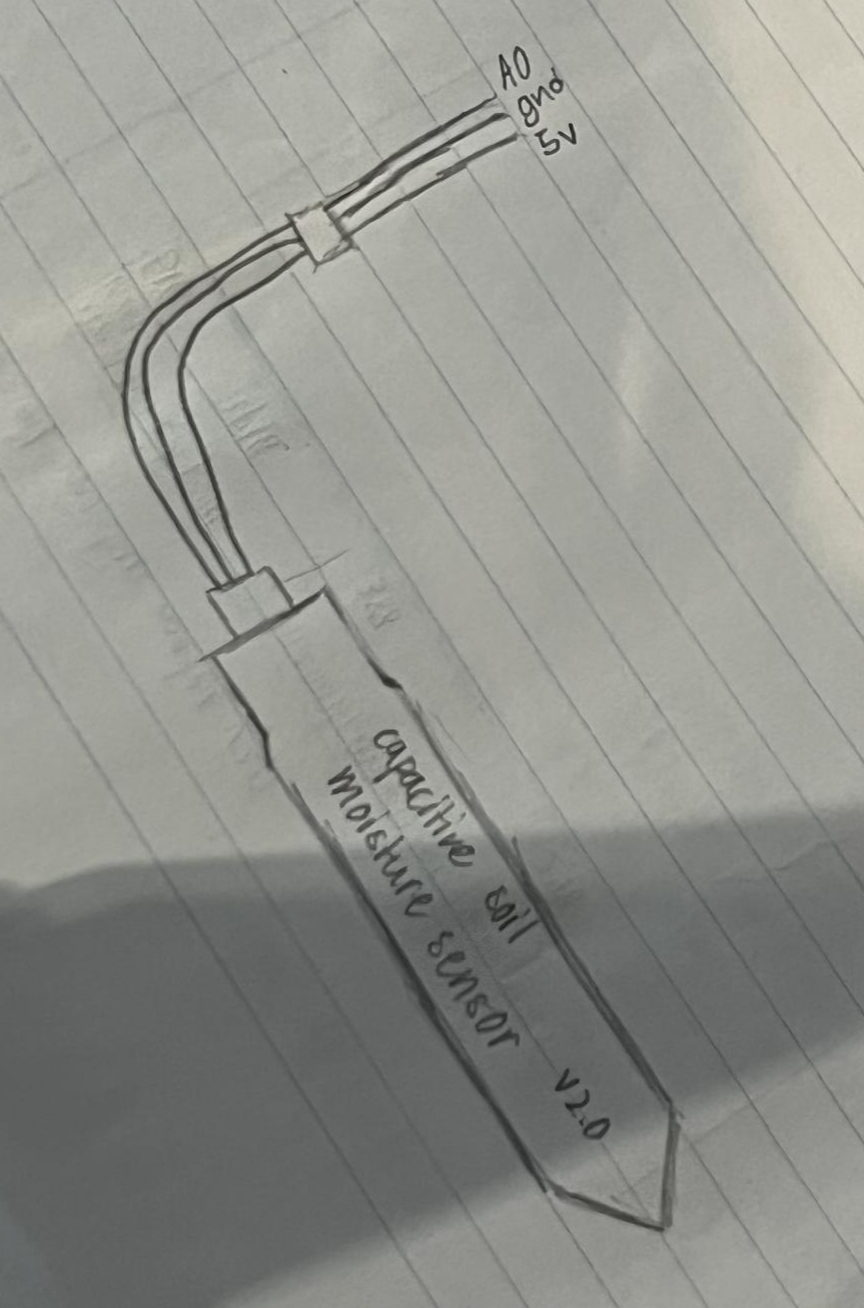 A0
gnd
5V
capacitive soil
moisture sensor
v2.0